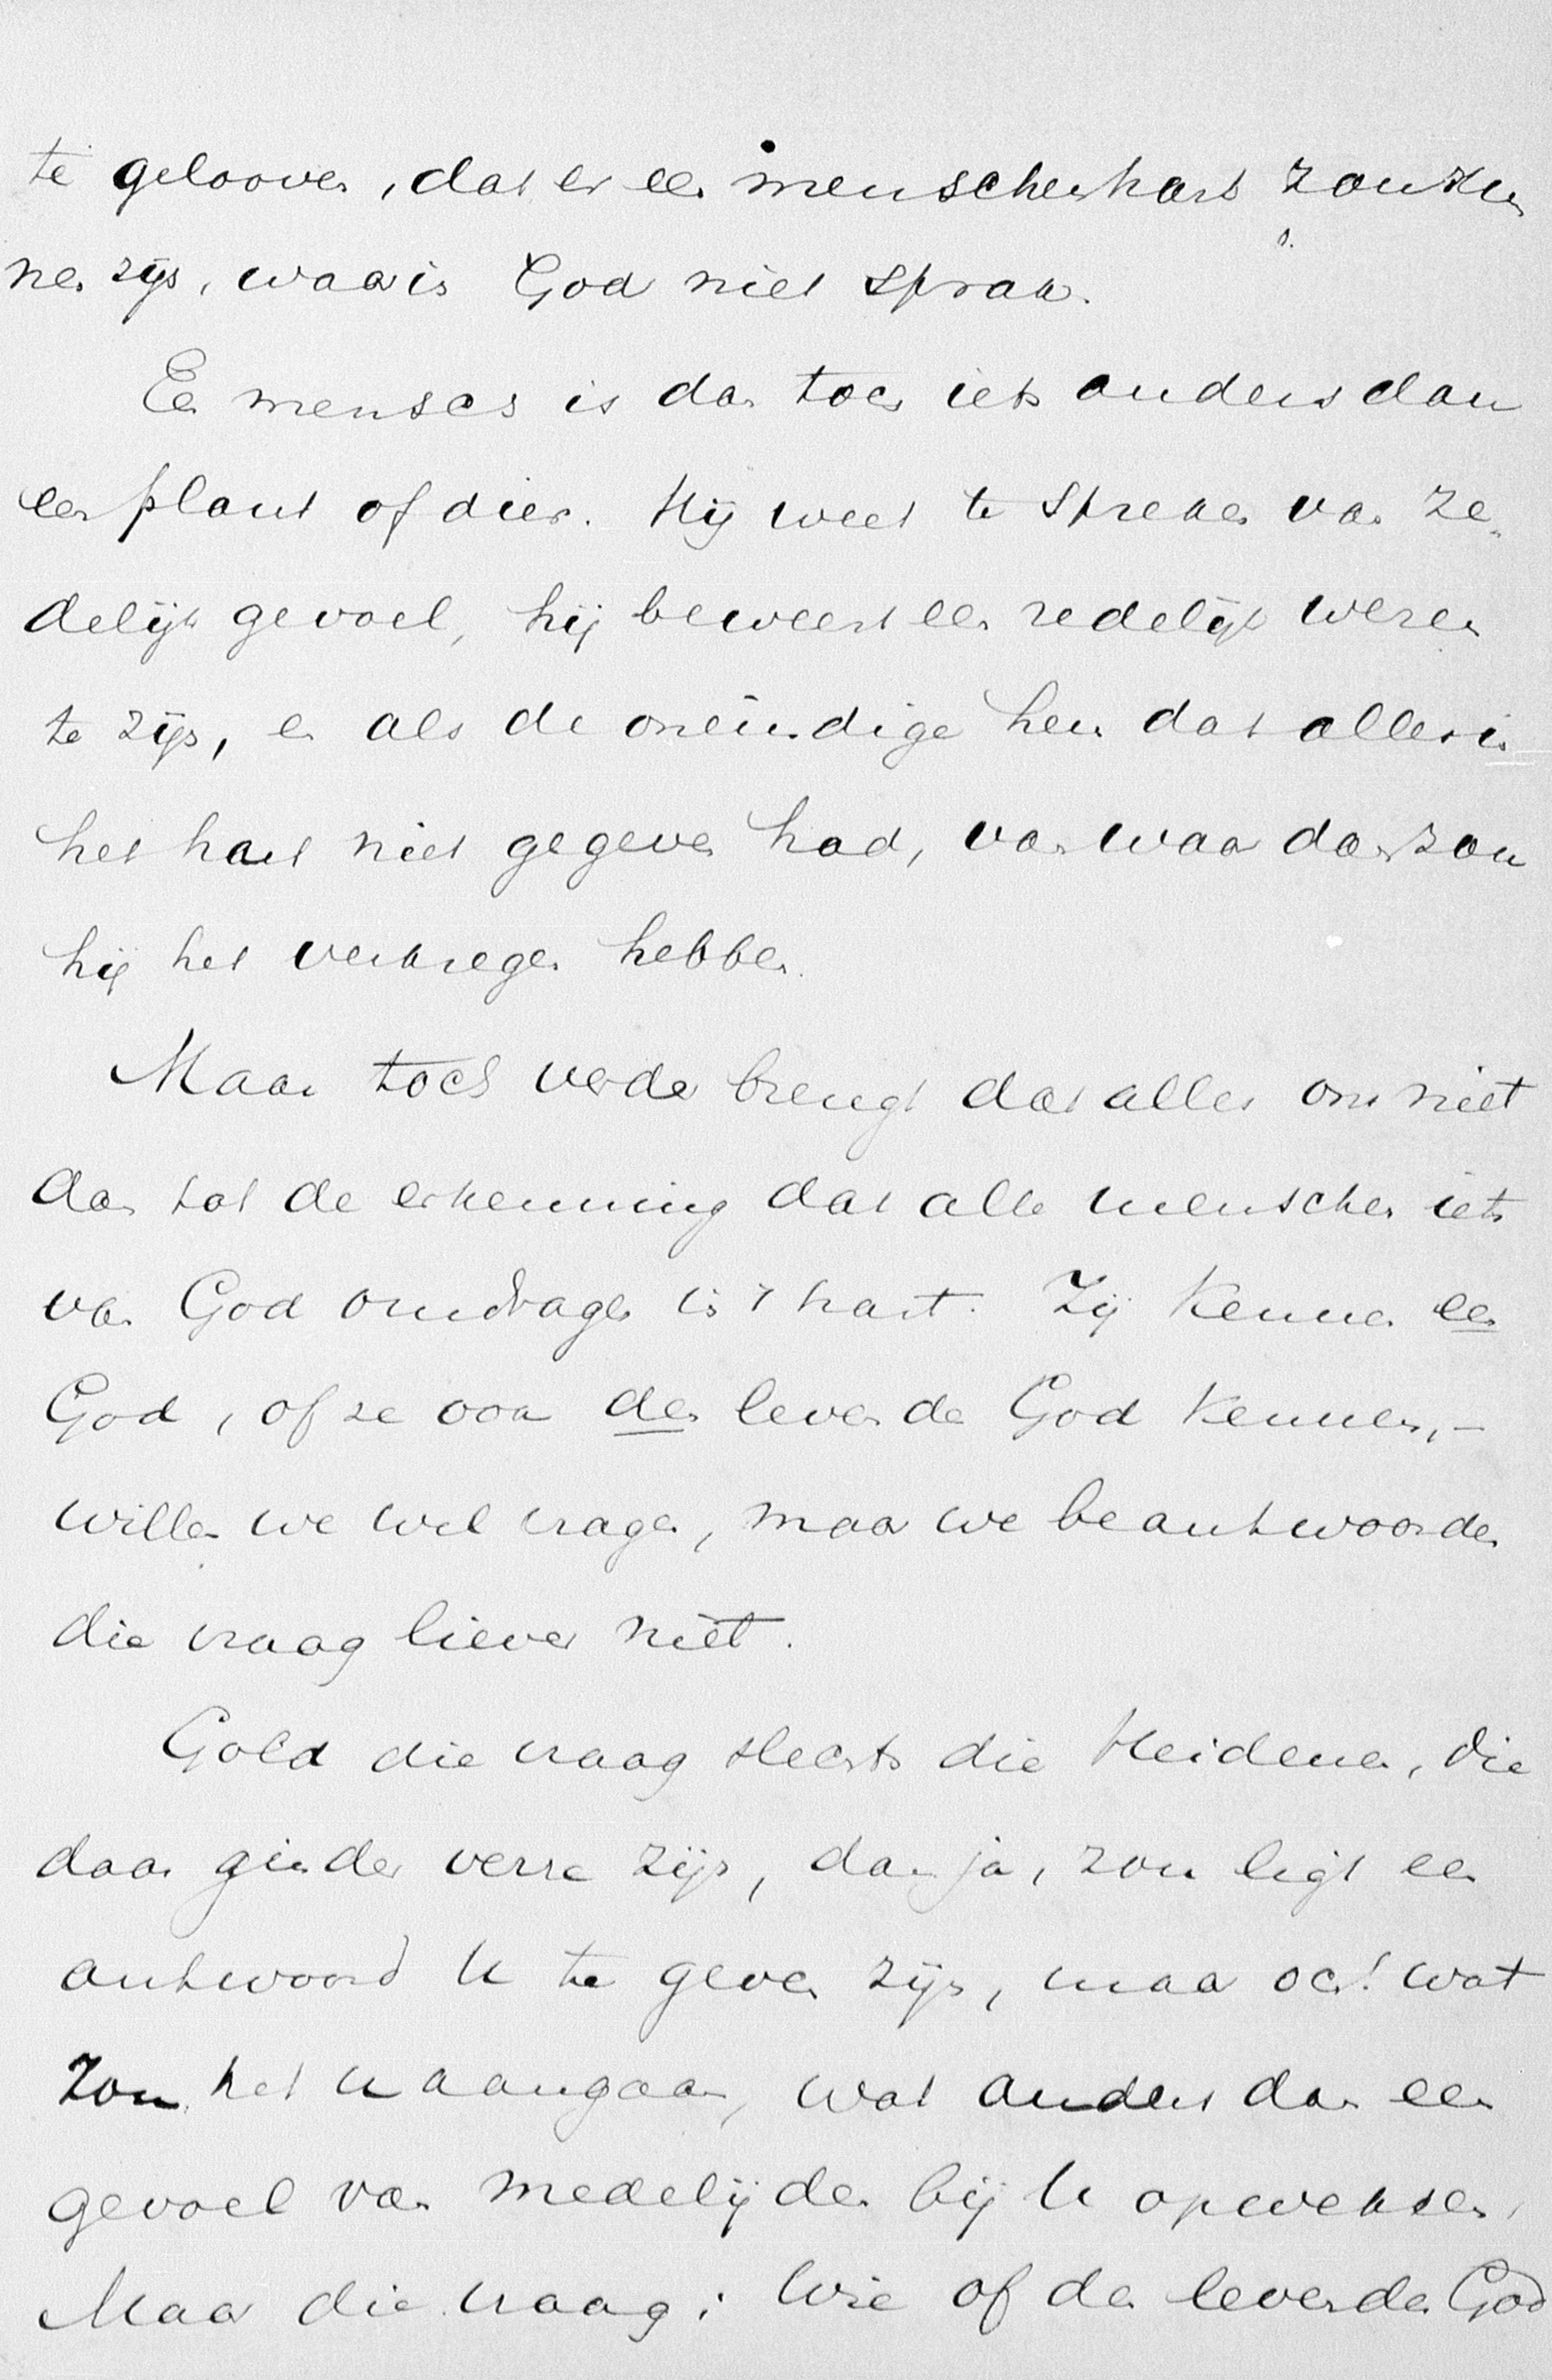 te gelooven, dat er een menschenhart zou kun
nen zijn, waarin God niet sprak.
Een mensch is dan toch iets anders dan
een plant of dier. Hij weet te spreken van ze„
delijk gevoel, hij beweert een redelijk wezen
te zijn, en als de oneindige hem dat alles in
het hart niet gegeven had, van waar dan zou
hij het verkregen hebben.
Maar toch verder brengt dat alles ons niet
dan tot de erkenning dat alle menschen iets
van God omdragen in 't hart. Zij kennen een
God, of ze ook den levenden God kennen, –
willen we wel vragen, maar we beantwoorden
die vraag liever niet.
Gold die vraag slechts die Heidenen, die
daar ginder verre zijn, dan ja, zou ligt een
antwoord U te geven zijn, maar och! wat
zou het U aangaan, wat anders dan een
gevoel van medelijden bij U opwekken,
Maar die vraag: Wie of den levenden God